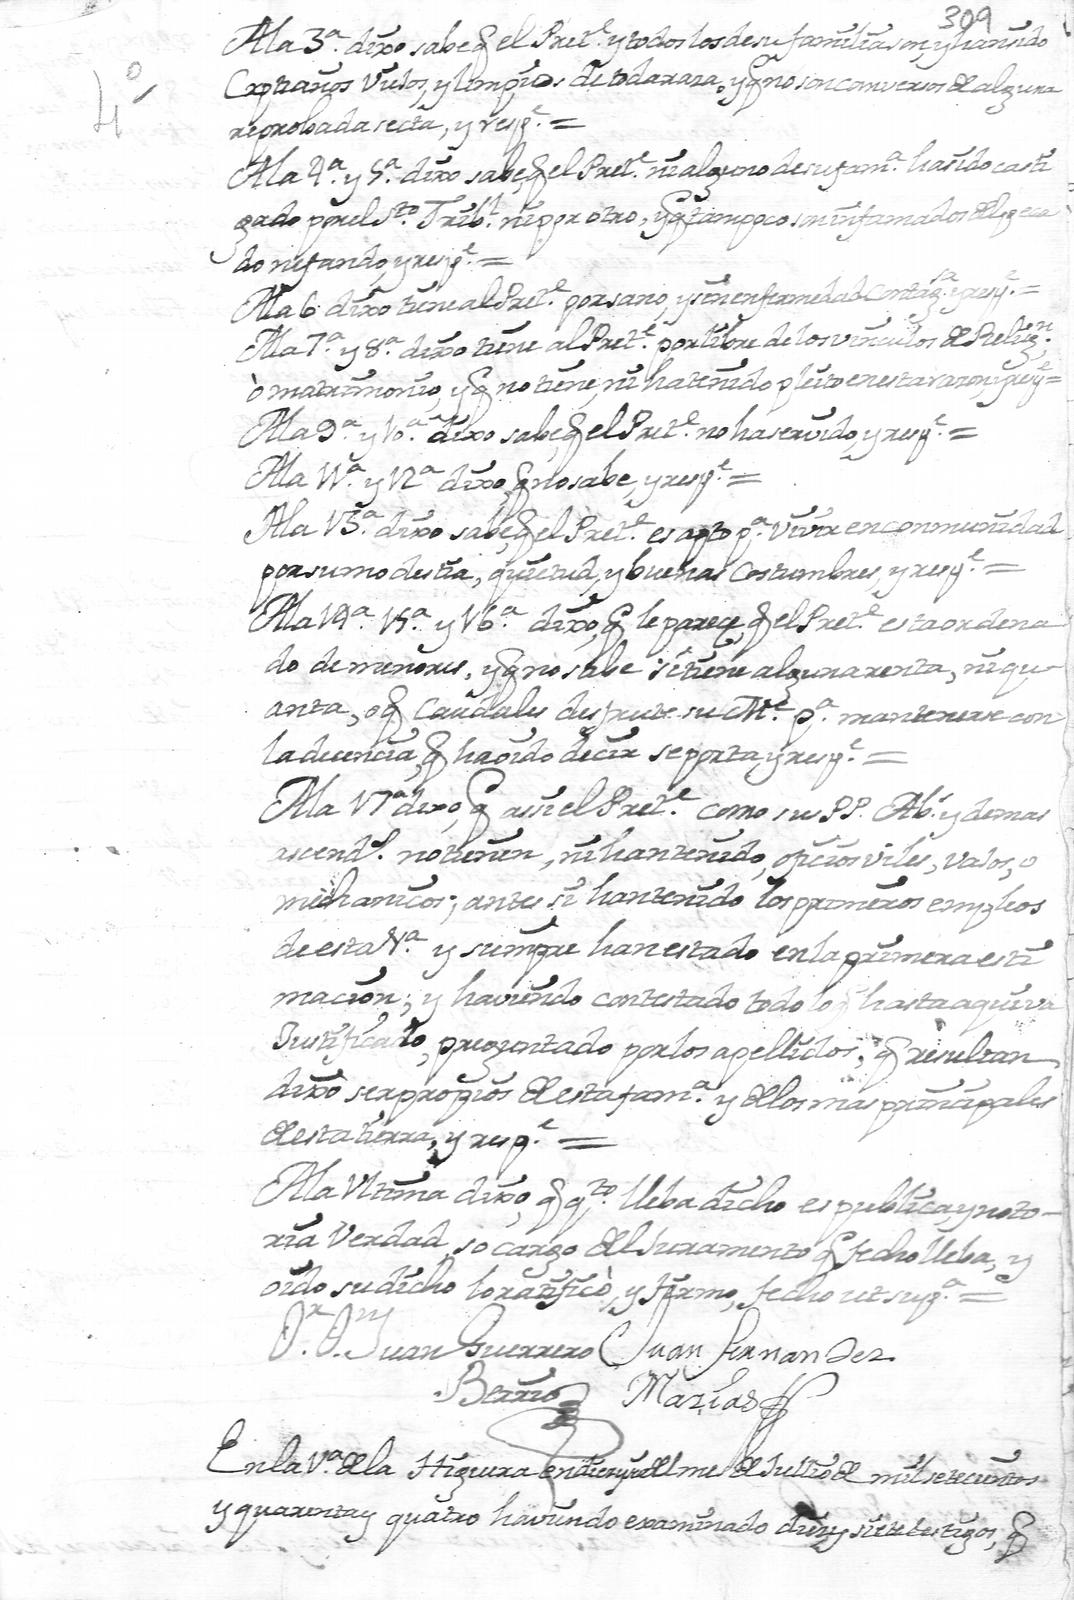 309
4º
A la 3ª. dixo sabe q̃ el Pretᵉ. y todos los de su familia son, y han sido
Crptianos Viejos, y limpios de toda raza, y q̃ no son conversos de alguna
reprobada secta, y respᵉ. =
A la 4ª. y 5ª. dixo sabe, q̃ el Pretᵉ. ni alguno de su famª. ha sido casti
gado por el Stº. Tribˡ. ni por otro, y q̃ tampoco son infamados del peca
do nefando, y respᵉ. =
A la 6 dixo tiene al Pretᵉ. por sano, y sin enfermedad contagˢᵃ. y respᵉ. =
A la 7ª. y 8ª. dixo tiene al Pretᵉ. por libre de los vinculos de Religⁿ.
ò matrimonio, y q̃ no tiene, ni ha tenido pleito en esta razon, y respᵉ =
A la 9ª. y 10ª. dixo sabe, q̃ el Pretᵉ. no ha servido, y respᵉ. =
A la 11ª. y 12ª dixo, q̃ no sabe, y respᵉ =
A la 13ª. dixo sabe, q̃ el Pretᵉ. es apto pª. vivir en conmunidad
por su modestia, quietud, y buenas costumbres, y respᵉ. =
A la 14ª. 15ª. y 16ª. dixo, q̃ le parece, q̃ el Pretᵉ. esta ordena
do de menores, y q̃ no sabe si tiene alguna renta, ni qu-
anta, o q̃ caudales disfrute su Mᵉ. pª. mantenerse con
la decencia, q̃ ha oido decir se porta, y respᵉ. =
A la 17ª dixo, q̃ assi el Pretᵉ. como su PP. Abˢ. y demas
ascendˢ. no tienen, ni han tenido, oficios viles, vajos, o
mechanicos; antes si han tenido los primeros empleos
de esta Vª. y siempre han estado en la primera esti
macion; y haviendo contestado todo lo q̃ hasta aqui va
Justificado, preguntado por los apellidos; q̃ resultan
dixo ser propios de esta famª. y de los mas principales
de esta tierra, y respᵉ. =
A la Vltima dixo, q̃ qᵗᵒ. lleba dicho es publica, y noto-
ria Verdad, so cargo del Juramento q̃ fecho lleba, y
oido su dicho lo ratificò, y firmo, fecho ut supª. =
Dʳ. Dⁿ Juan Guerrero Juan Fernandez
Berrio Mazias
En la Vª. de la Higuera en diez y del mes de Jullio de mil setecientos
y quarenta y quatro haviendo examinado diez y siete testigos, q̃